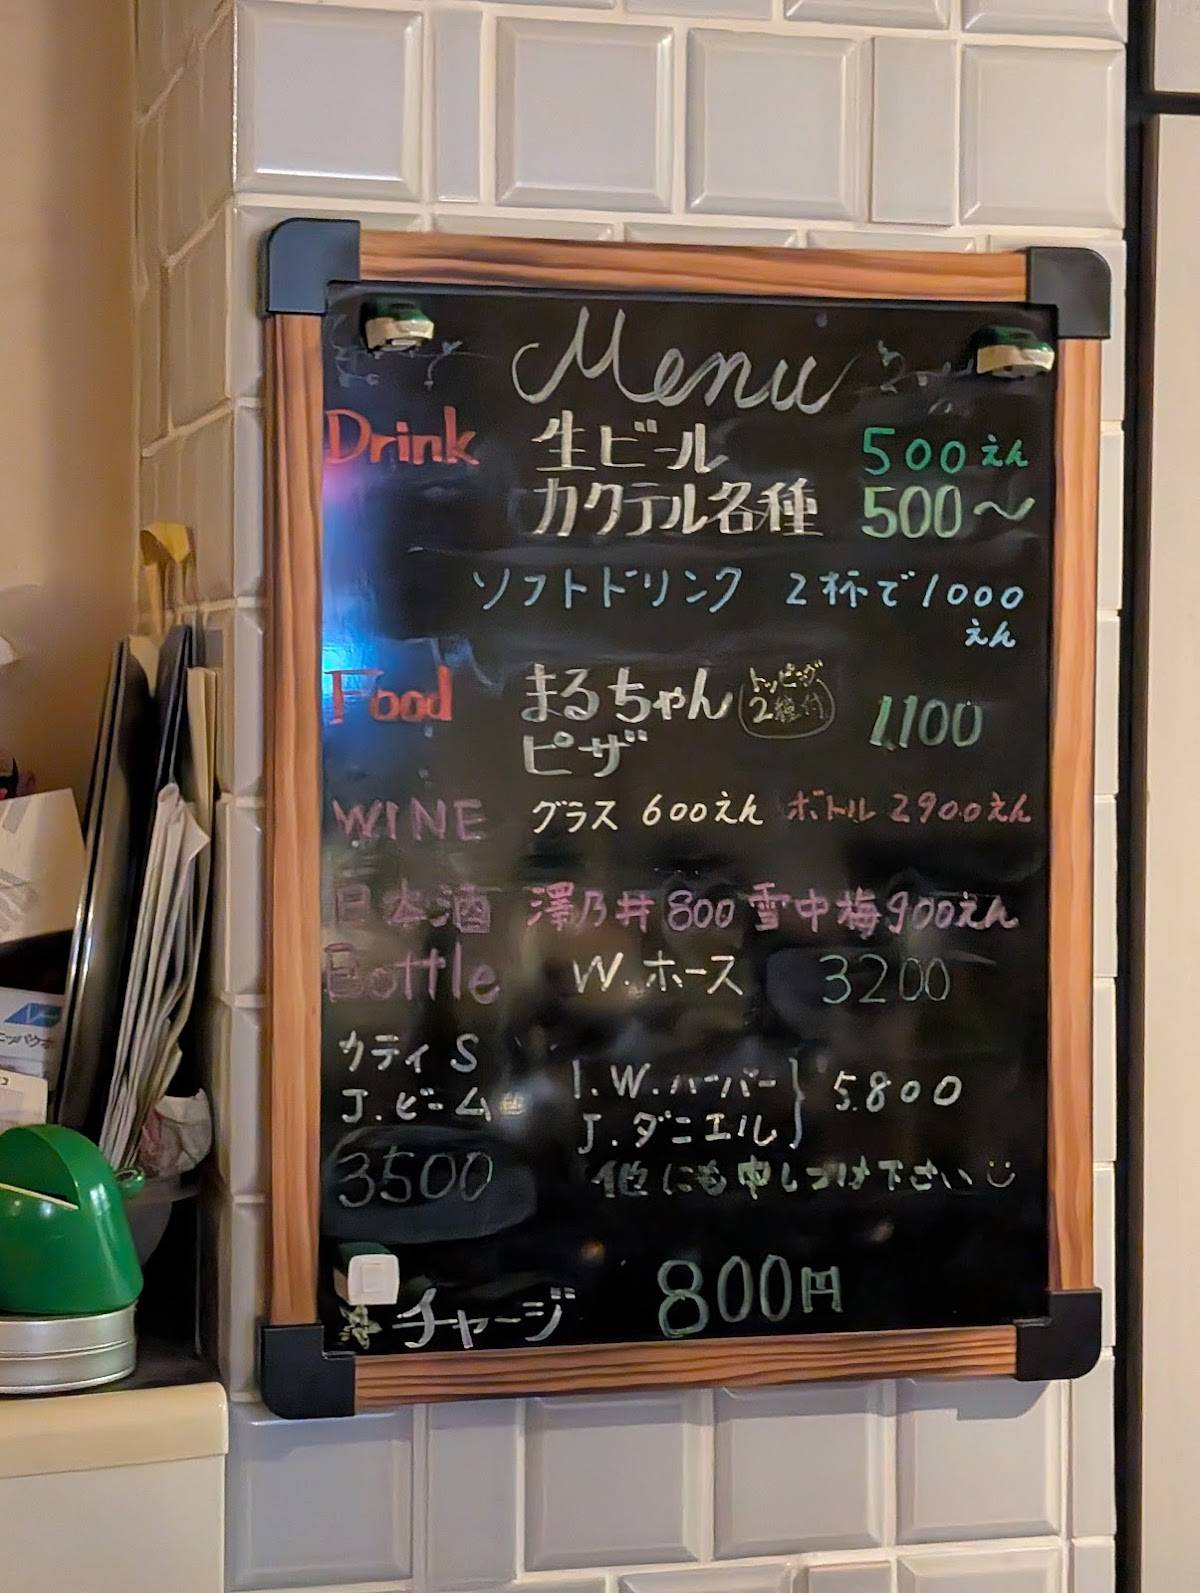 Menu
Drink 生ビール 500えん
カクテル各種 500〜
ソフトドリンク 2杯で1000
えん
Food まるちゃん トッピング 2種付 1,100
ピザ
WINE グラス 600えん ボトル 2900えん
日本酒 澤乃井 800 雪中梅 900えん
Bottle W.ホース 3200
カティS
J.ビーム
3500
I.W.ハーパー
J.ダニエル
5.800
他にも申しつけ下さい
チャージ 800円